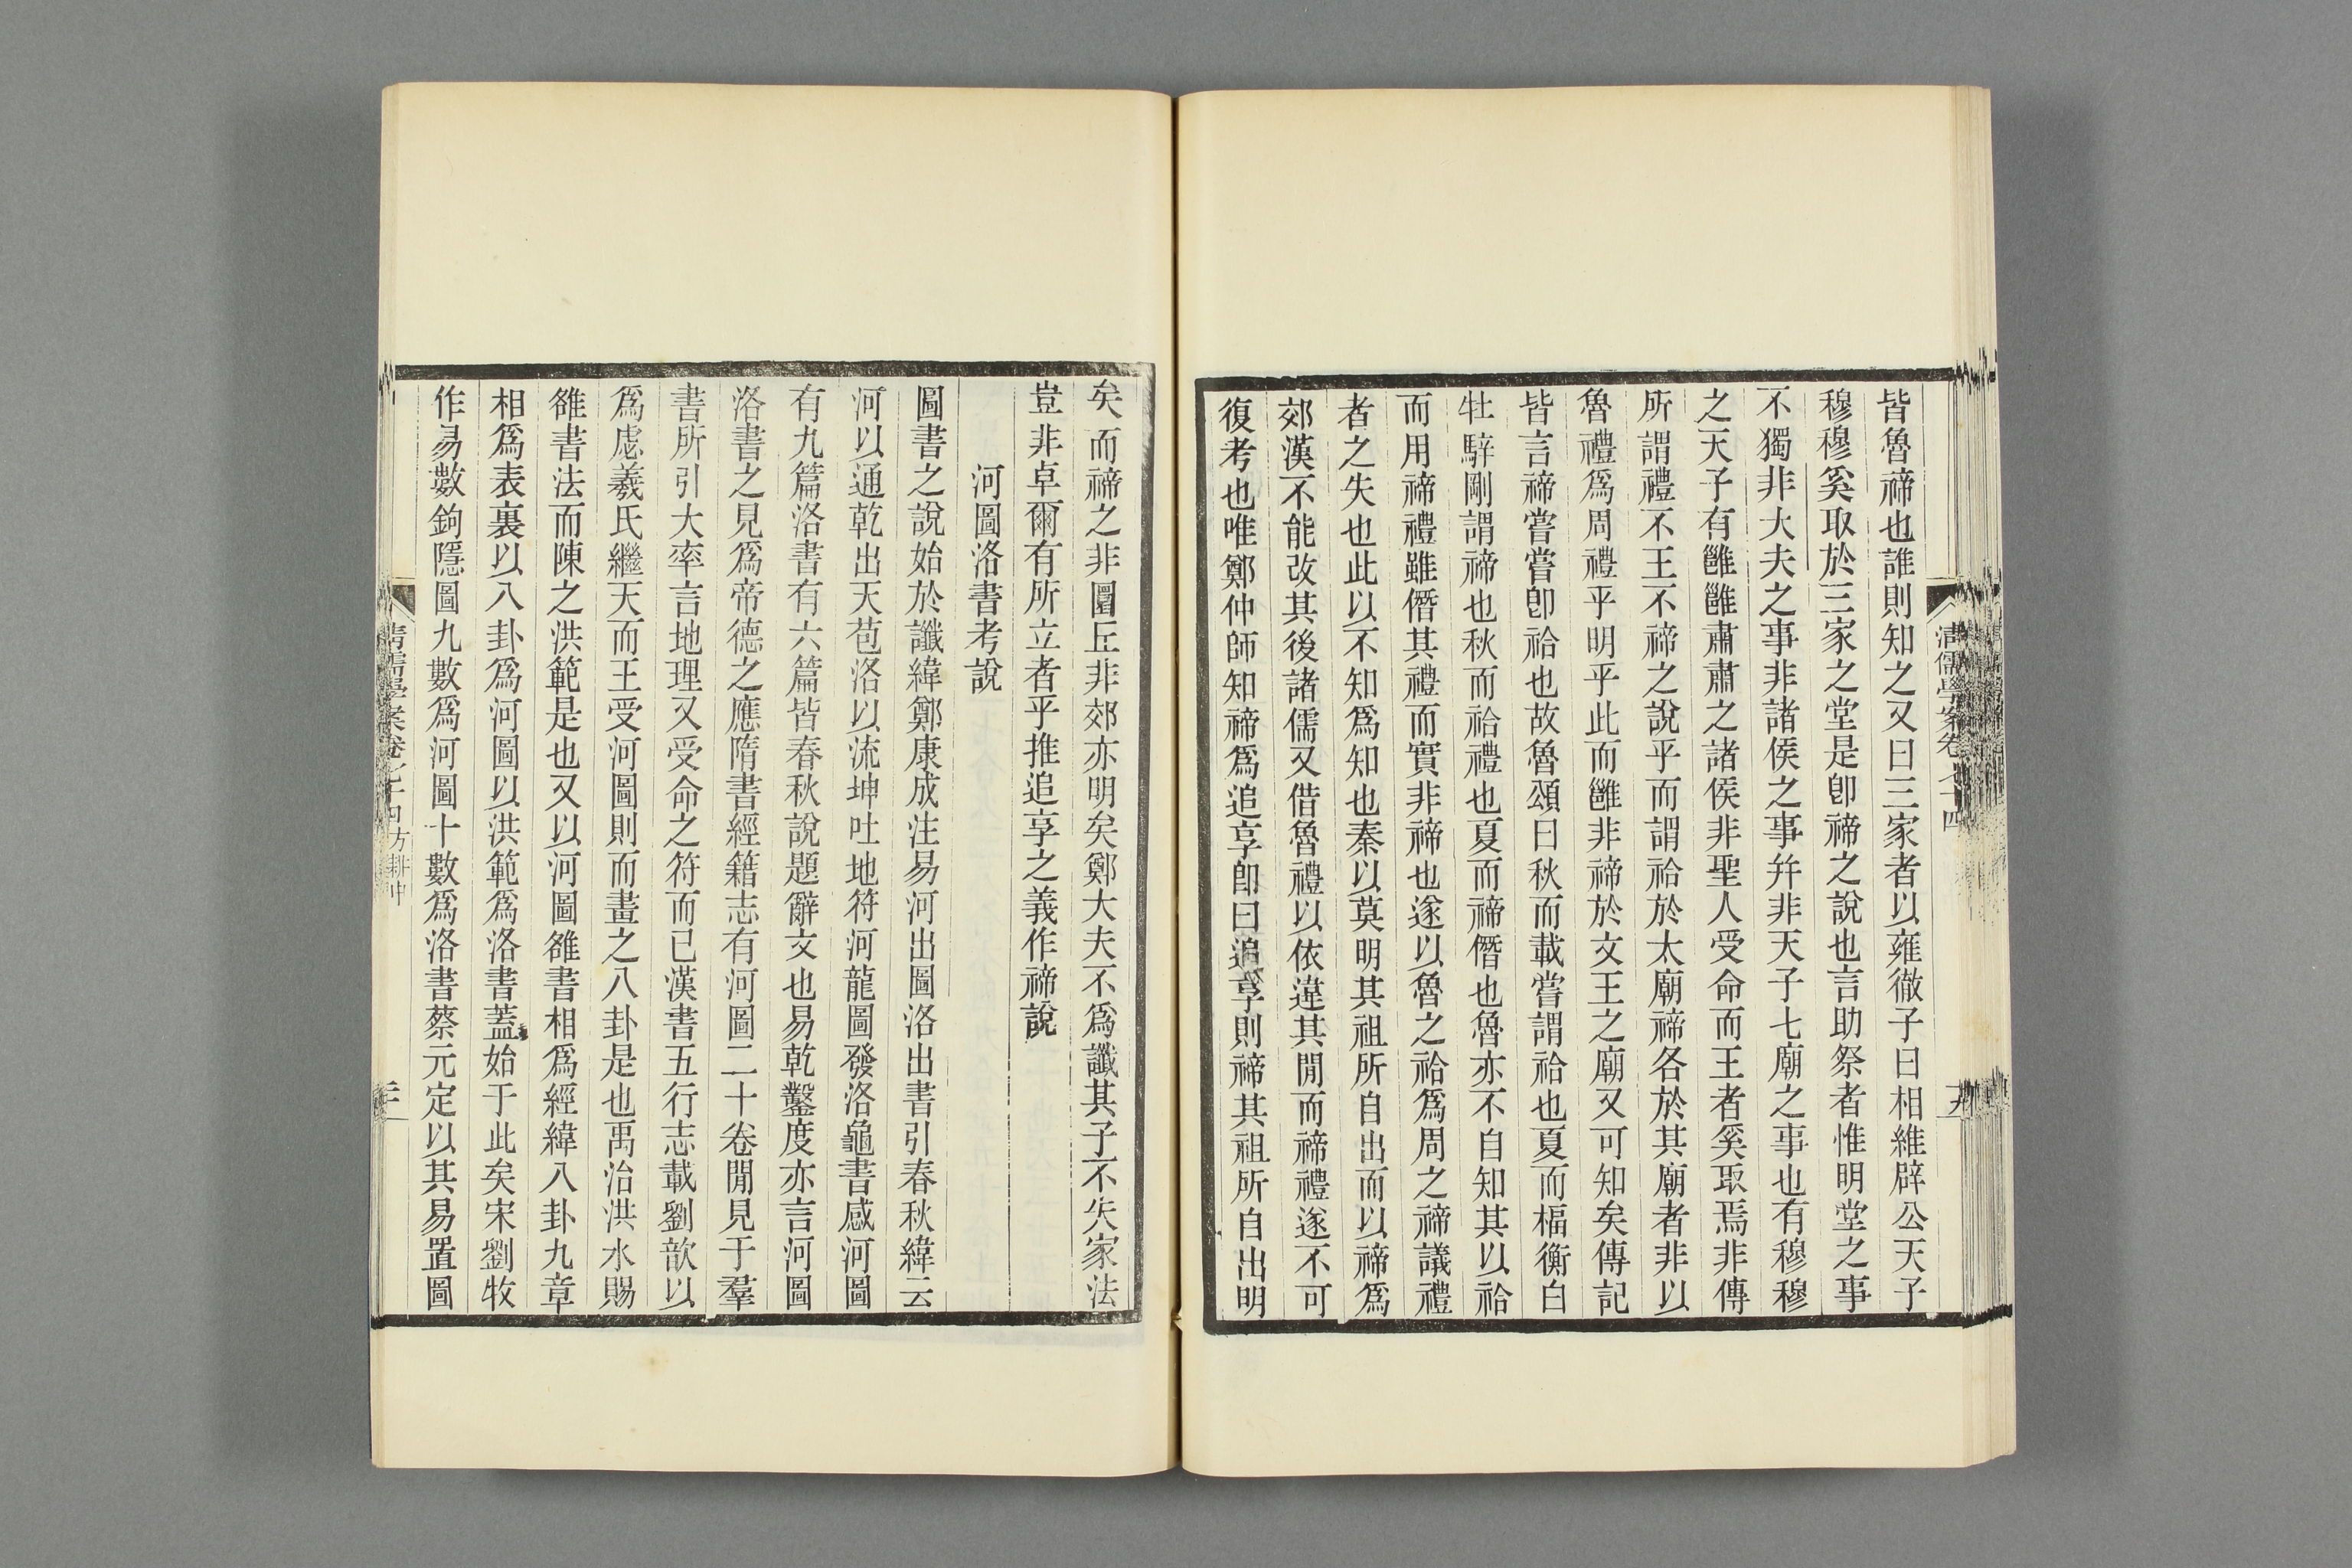 皆魯禘也誰則知之又曰三家者以雍徹子曰相維辟公天子
穆穆奚取於三家之堂是卽禘之說也言助祭者惟明堂之事
不獨非大夫之事非諸侯之事幷非天子七廟之事也有穆穆
之天子有雝雝肅肅之諸侯非聖人受命而王者奚取焉非傳
所謂禮不王不禘之說乎而謂祫於太廟禘各於其廟者非以
魯禮爲周禮乎明乎此而雝非禘於文王之廟又可知矣傳記
皆言禘嘗嘗卽祫也故魯頌曰秋而載嘗謂祫也夏而楅衡白
牡騂剛謂禘也秋而祫禮也夏而禘僭也魯亦不自知其以祫
而用禘禮雖僭其禮而實非禘也遂以魯之祫爲周之禘議禮
者之失也此以不知爲知也秦以莫明其祖所自出而以禘爲
郊漢不能改其後諸儒又借魯禮以依違其閒而禘禮遂不可
復考也唯鄭仲師知禘爲追享卽曰追享則禘其祖所自出明
清儒學案卷七十四
十九
矣而禘之非圜丘非郊亦明矣鄭大夫不爲讖其子不失家法
豈非卓爾有所立者乎推追享之義作禘說
河圖洛書考說
圖書之說始於讖緯鄭康成注易河出圖洛出書引春秋緯云
河以通乾出天苞洛以流坤吐地符河龍圖發洛龜書感河圖
有九篇洛書有六篇皆春秋說題辭文也易乾鑿度亦言河圖
洛書之見爲帝德之應隋書經籍志有河圖二十卷閒見于羣
書所引大率言地理又受命之符而已漢書五行志載劉歆以
爲虙羲氏繼天而王受河圖則而畫之八卦是也禹治洪水賜
雒書法而陳之洪範是也又以河圖雒書相爲經緯八卦九章
相爲表裏以八卦爲河圖以洪範爲洛書蓋始于此矣宋劉牧
作易數鉤隱圖九數爲河圖十數爲洛書蔡元定以其易置圖
清儒學案卷七十四 方耕中